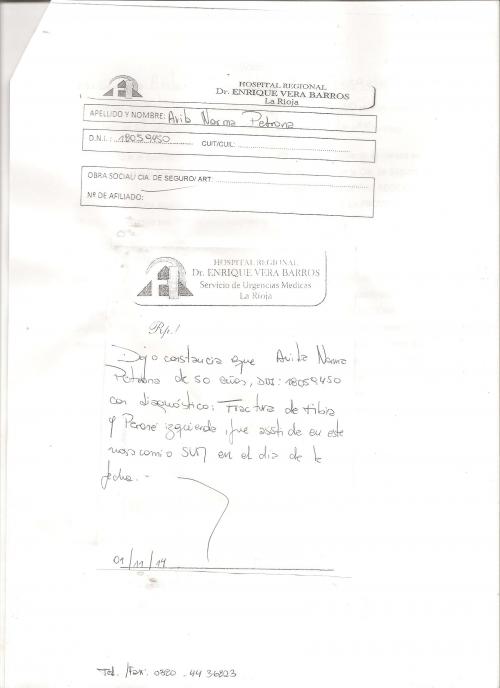 HOSPITAL REGIONAL
Dr. ENRIQUE VERA BARROS
La Rioja
APELLIDO Y NOMBRE: Avila Norma Petrona
D.N.I.: 18059450 CUIT/CUIL:
OBRA SOCIAL/ CIA. DE SEGURO/ ART:
Nº DE AFILIADO:
HOSPITAL REGIONAL
Dr. ENRIQUE VERA BARROS
Servicio de Urgencias Medicas
La Rioja
Rp./
Dejo constancia que Avila Norma
Petrona de 50 años, DNI: 18059450
con diagnóstico: Fractura de tibia
y Peroné izquierda, fue asistide en este
nosocomio SUM en el dia de la
fecha.-
01/11/14
Tel. /Fax: 0380 - 44 36823